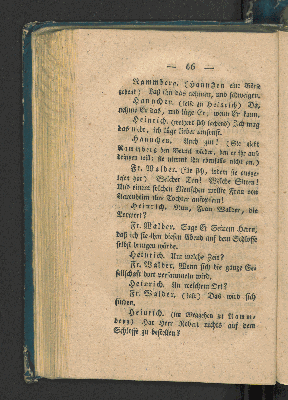 — 66 —
Rammberg. (Hannchen eine Börse
gebend) Laß ihn das nehmen, und schweigen.
Hannchen. (leise zu Heinrich) Da,
nehme Er das, und lüge Er, wenn Er kann.
Heinrich. (weigert sich lachend) Ich mag
das nicht, ich lüge lieber umsonst.
Hannchen. Auch gut! (Sie giebt
Rammberg den Beutel wieder, den er ihr auf-
dringen will; sie nimmt ihn ebenfalls nicht an.)
Fr. Walber. (für sich, indem sie ausge-
lesen hat) Welcher Ton! Welche Sitten!
Und einem solchen Menschen wollte Frau von
ihre Tochter aufopfern!
Heinrich. Nun, Frau Walber, die
Antwort?
Fr. Walber. Sage Er Seinem Herrn,
daß ich sie ihm diesen Abend auf dem Schlosse
selbst bringen würde.
Heinrich. Um welche Zeit?
Fr. Walber. Wenn sich die ganze Ge-
sellschaft dort versammeln wird.
Heinrich. An welchem Ort?
Fr. Walber. (leise) Das wird sich
finden.
Heinrich. (im Weggehen zu Ramm-
berg) Hat Herr Robert nichts auf dem
Schlosse zu bestellen?